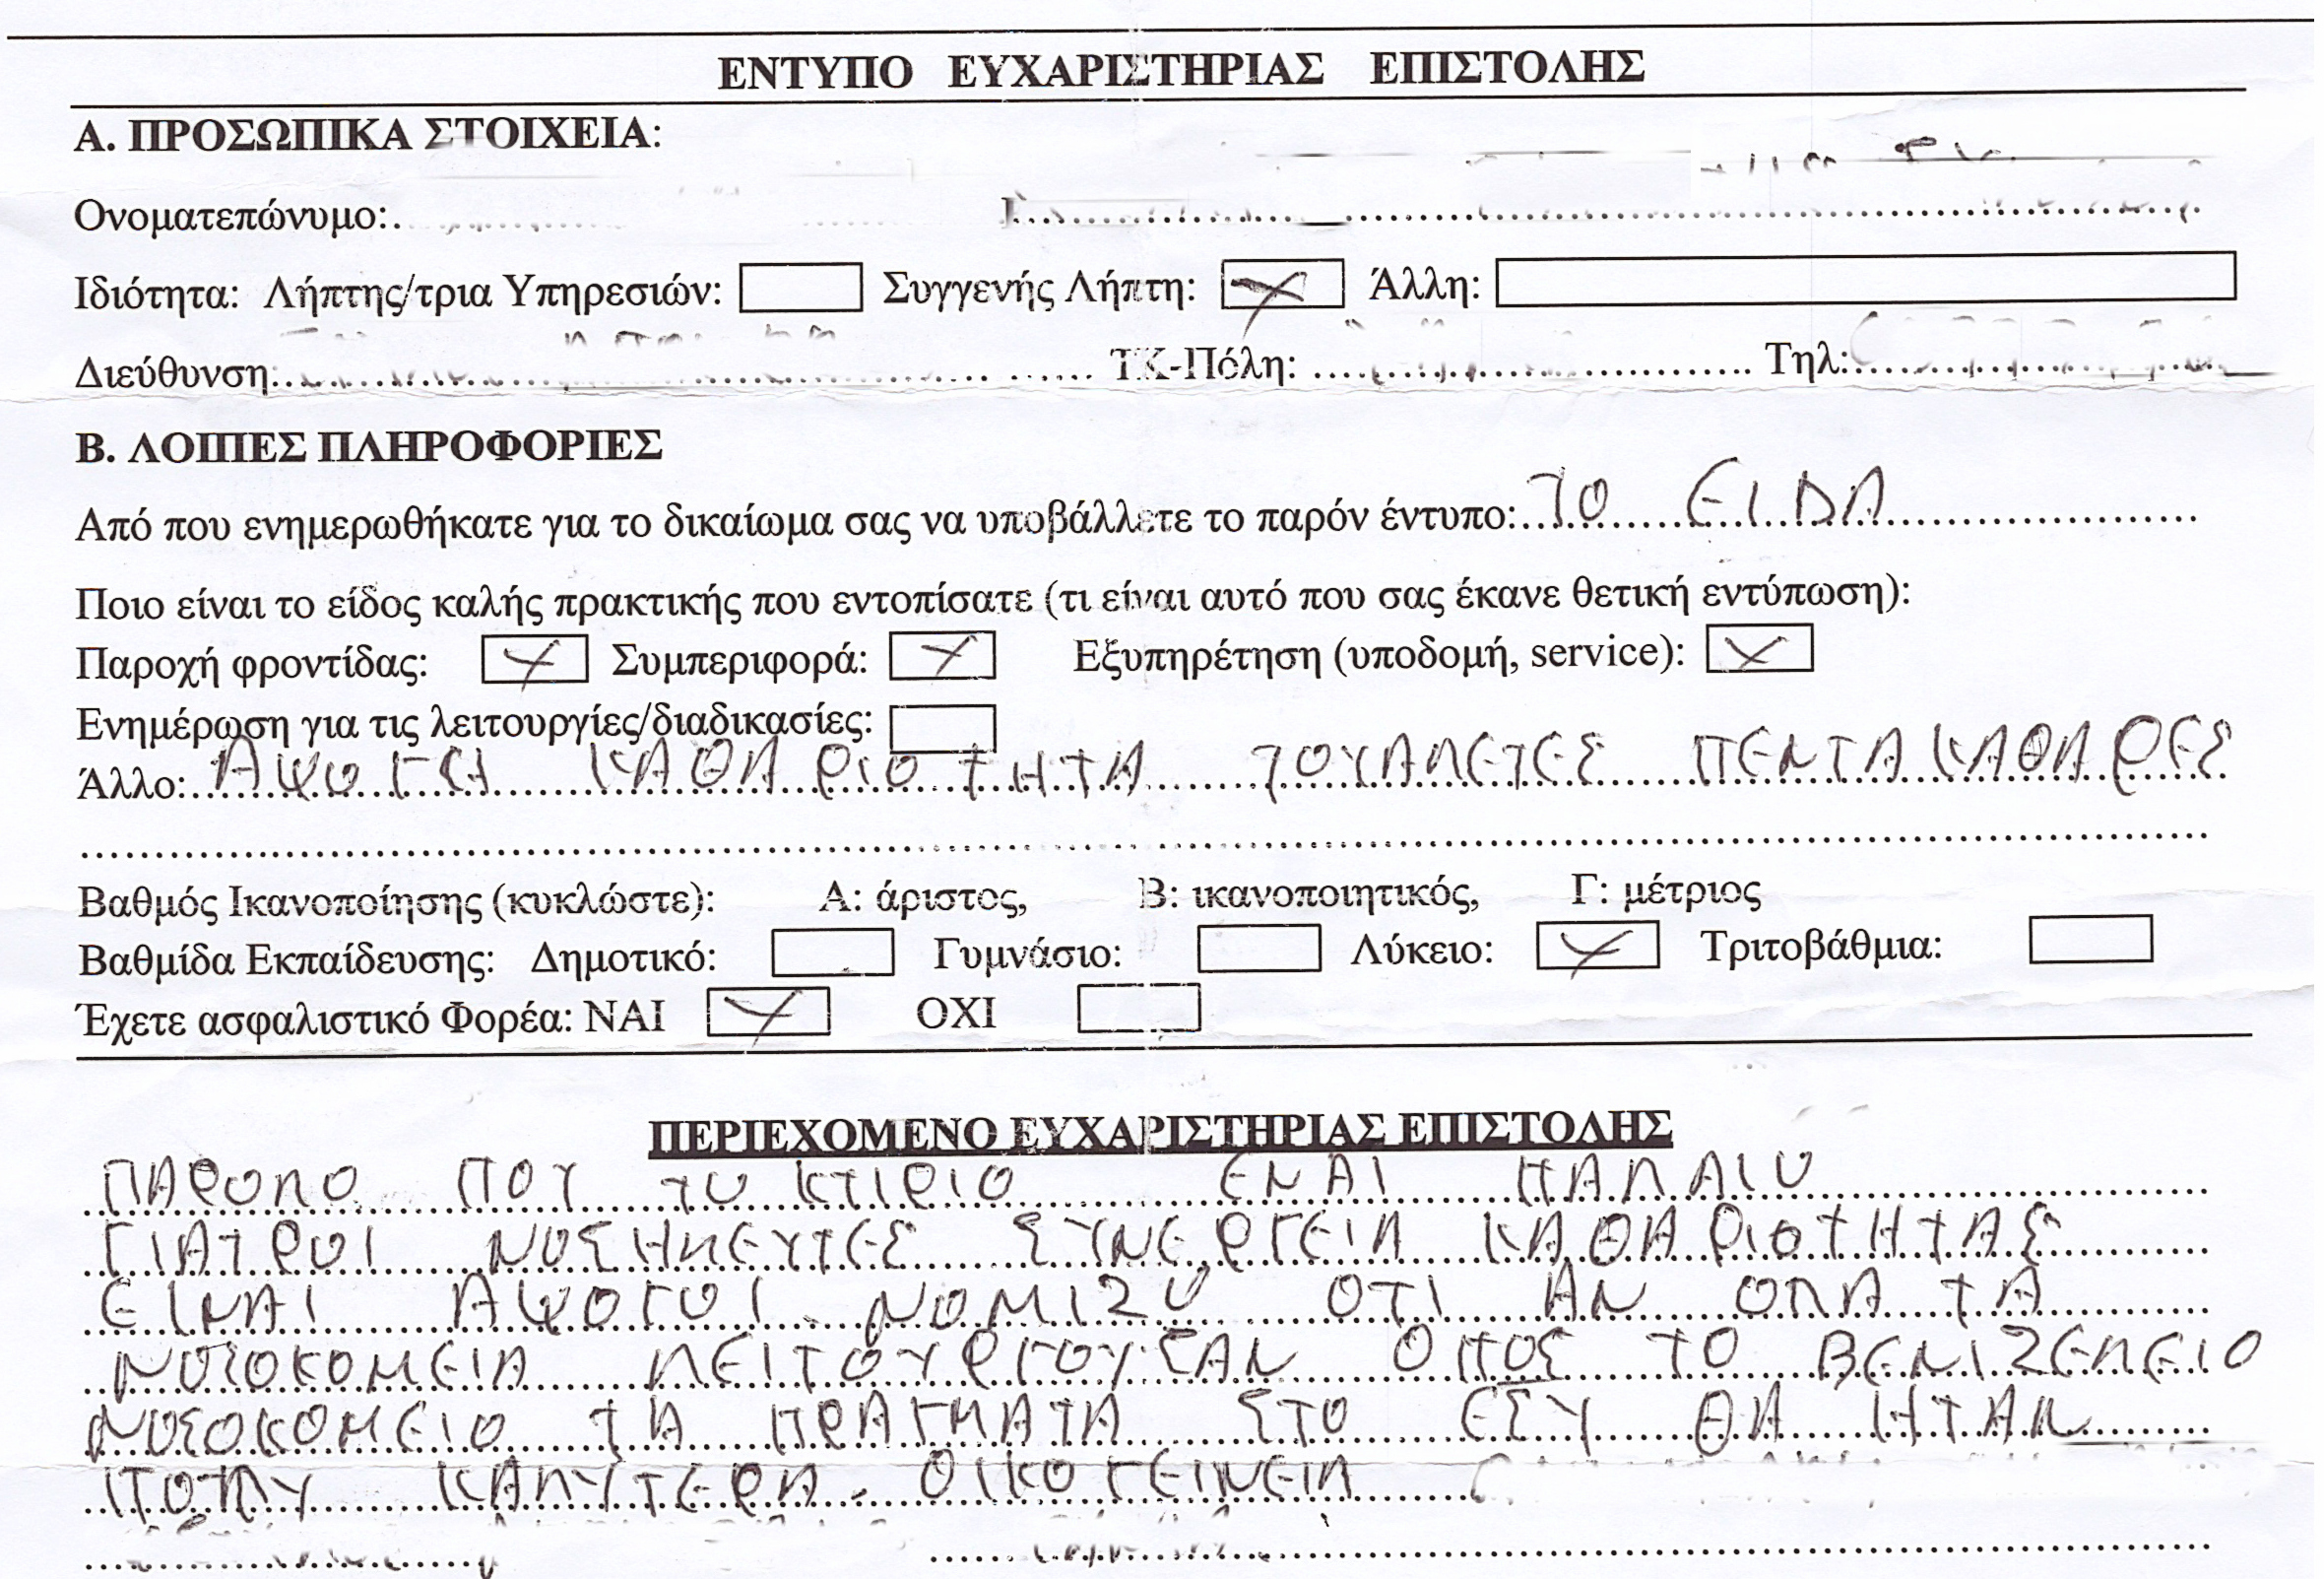 ΕΝΤΥΠΟ ΕΥΧΑΡΙΣΤΗΡΙΑΣ ΕΠΙΣΤΟΛΗΣ
Α. ΠΡΟΣΩΠΙΚΑ ΣΤΟΙΧΕΙΑ:
Ονοματεπώνυμο:
Ιδιότητα: Λήπτης/τρια Υπηρεσιών: Συγγενής Λήπτη: Χ Άλλη:
Διεύθυνση: ΤΚ-Πόλη: Τηλ:
Β. ΛΟΙΠΕΣ ΠΛΗΡΟΦΟΡΙΕΣ
Από που ενημερωθήκατε για το δικαίωμα σας να υποβάλλετε το παρόν έντυπο: ΤΟ ΕΙΔΑ
Ποιο είναι το είδος καλής πρακτικής που εντοπίσατε (τι είναι αυτό που σας έκανε θετική εντύπωση):
Παροχή φροντίδας: Χ Συμπεριφορά: Χ Εξυπηρέτηση (υποδομή, service): Χ
Ενημέρωση για τις λειτουργίες/διαδικασίες:
Άλλο: ΑΨΟΓΗ ΚΑΘΑΡΙΟΤΗΤΑ ΤΟΥΑΛΕΤΕΣ ΠΕΝΤΑΚΑΘΑΡΕΣ
Βαθμός Ικανοποίησης (κυκλώστε): Α: άριστος, Β: ικανοποιητικός, Γ: μέτριος
Βαθμίδα Εκπαίδευσης: Δημοτικό: Γυμνάσιο: Λύκειο: Χ Τριτοβάθμια:
Έχετε ασφαλιστικό Φορέα: ΝΑΙ Χ ΟΧΙ
ΠΕΡΙΕΧΟΜΕΝΟ ΕΥΧΑΡΙΣΤΗΡΙΑΣ ΕΠΙΣΤΟΛΗΣ
ΠΑΡΟΛΟ ΠΟΥ ΤΟ ΚΤΙΡΙΟ ΕΝΑΙ ΠΑΛΑΙΟ
ΓΙΑΤΡΟΙ ΝΟΣΗΛΕΥΤΕΣ ΣΥΝΕΡΓΕΙΑ ΚΑΘΑΡΙΟΤΗΤΑΣ
ΕΙΝΑΙ ΑΨΟΓΟΙ. ΝΟΜΙΖΟ ΟΤΙ ΑΝ ΟΛΑ ΤΑ
ΝΟΣΟΚΟΜΕΙΑ ΛΕΙΤΟΥΡΓΟΥΣΑΝ ΟΠΟΣ ΤΟ ΒΕΝΙΖΕΛΕΙΟ
ΝΟΣΟΚΟΜΕΙΟ ΤΑ ΠΡΑΓΜΑΤΑ ΣΤΟ ΕΣΥ ΘΑ ΗΤΑΝ
ΠΟΛΥ ΚΑΛΥΤΕΡΑ. ΟΙΚΟΓΕΙΝΕΙΑ